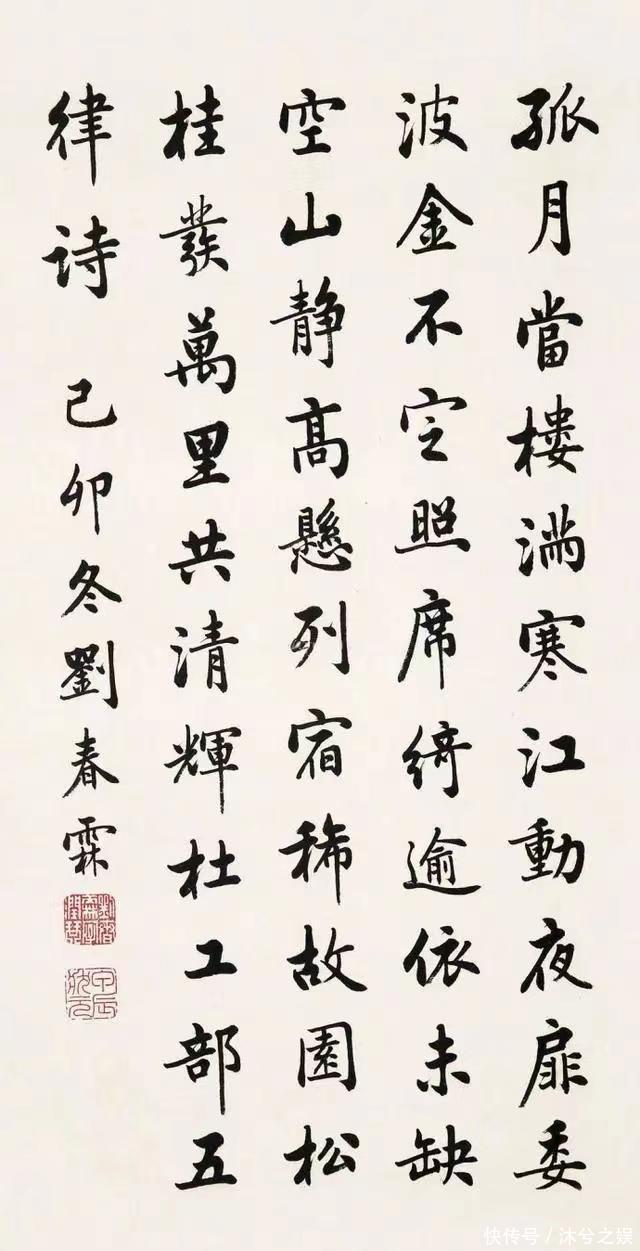 孤月當樓滿寒江動夜扉委
波金不定照席綺逾依未缺
空山静高懸列宿稀故園松
桂發萬里共清輝杜工部五
律诗 己卯冬劉春霖
快传号／沐兮之娱